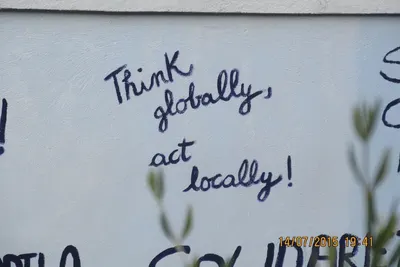 Think
globally,
act
locally!
14/07/2015 19:41